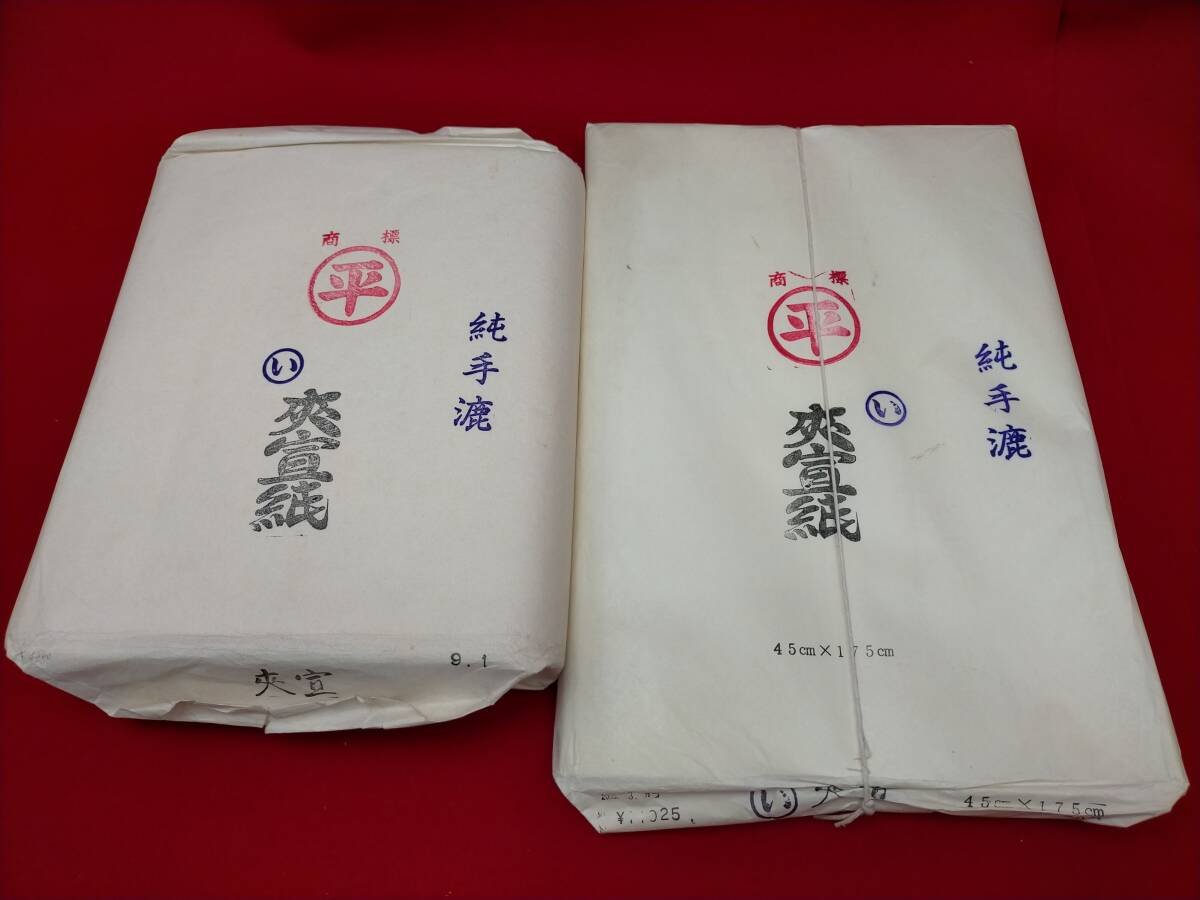 商標
平
い
夾宣紙
純手漉
9.1
夾宣
商標
平
い
夾宣紙
純手漉
45cm×175cm
い
45cm×175cm